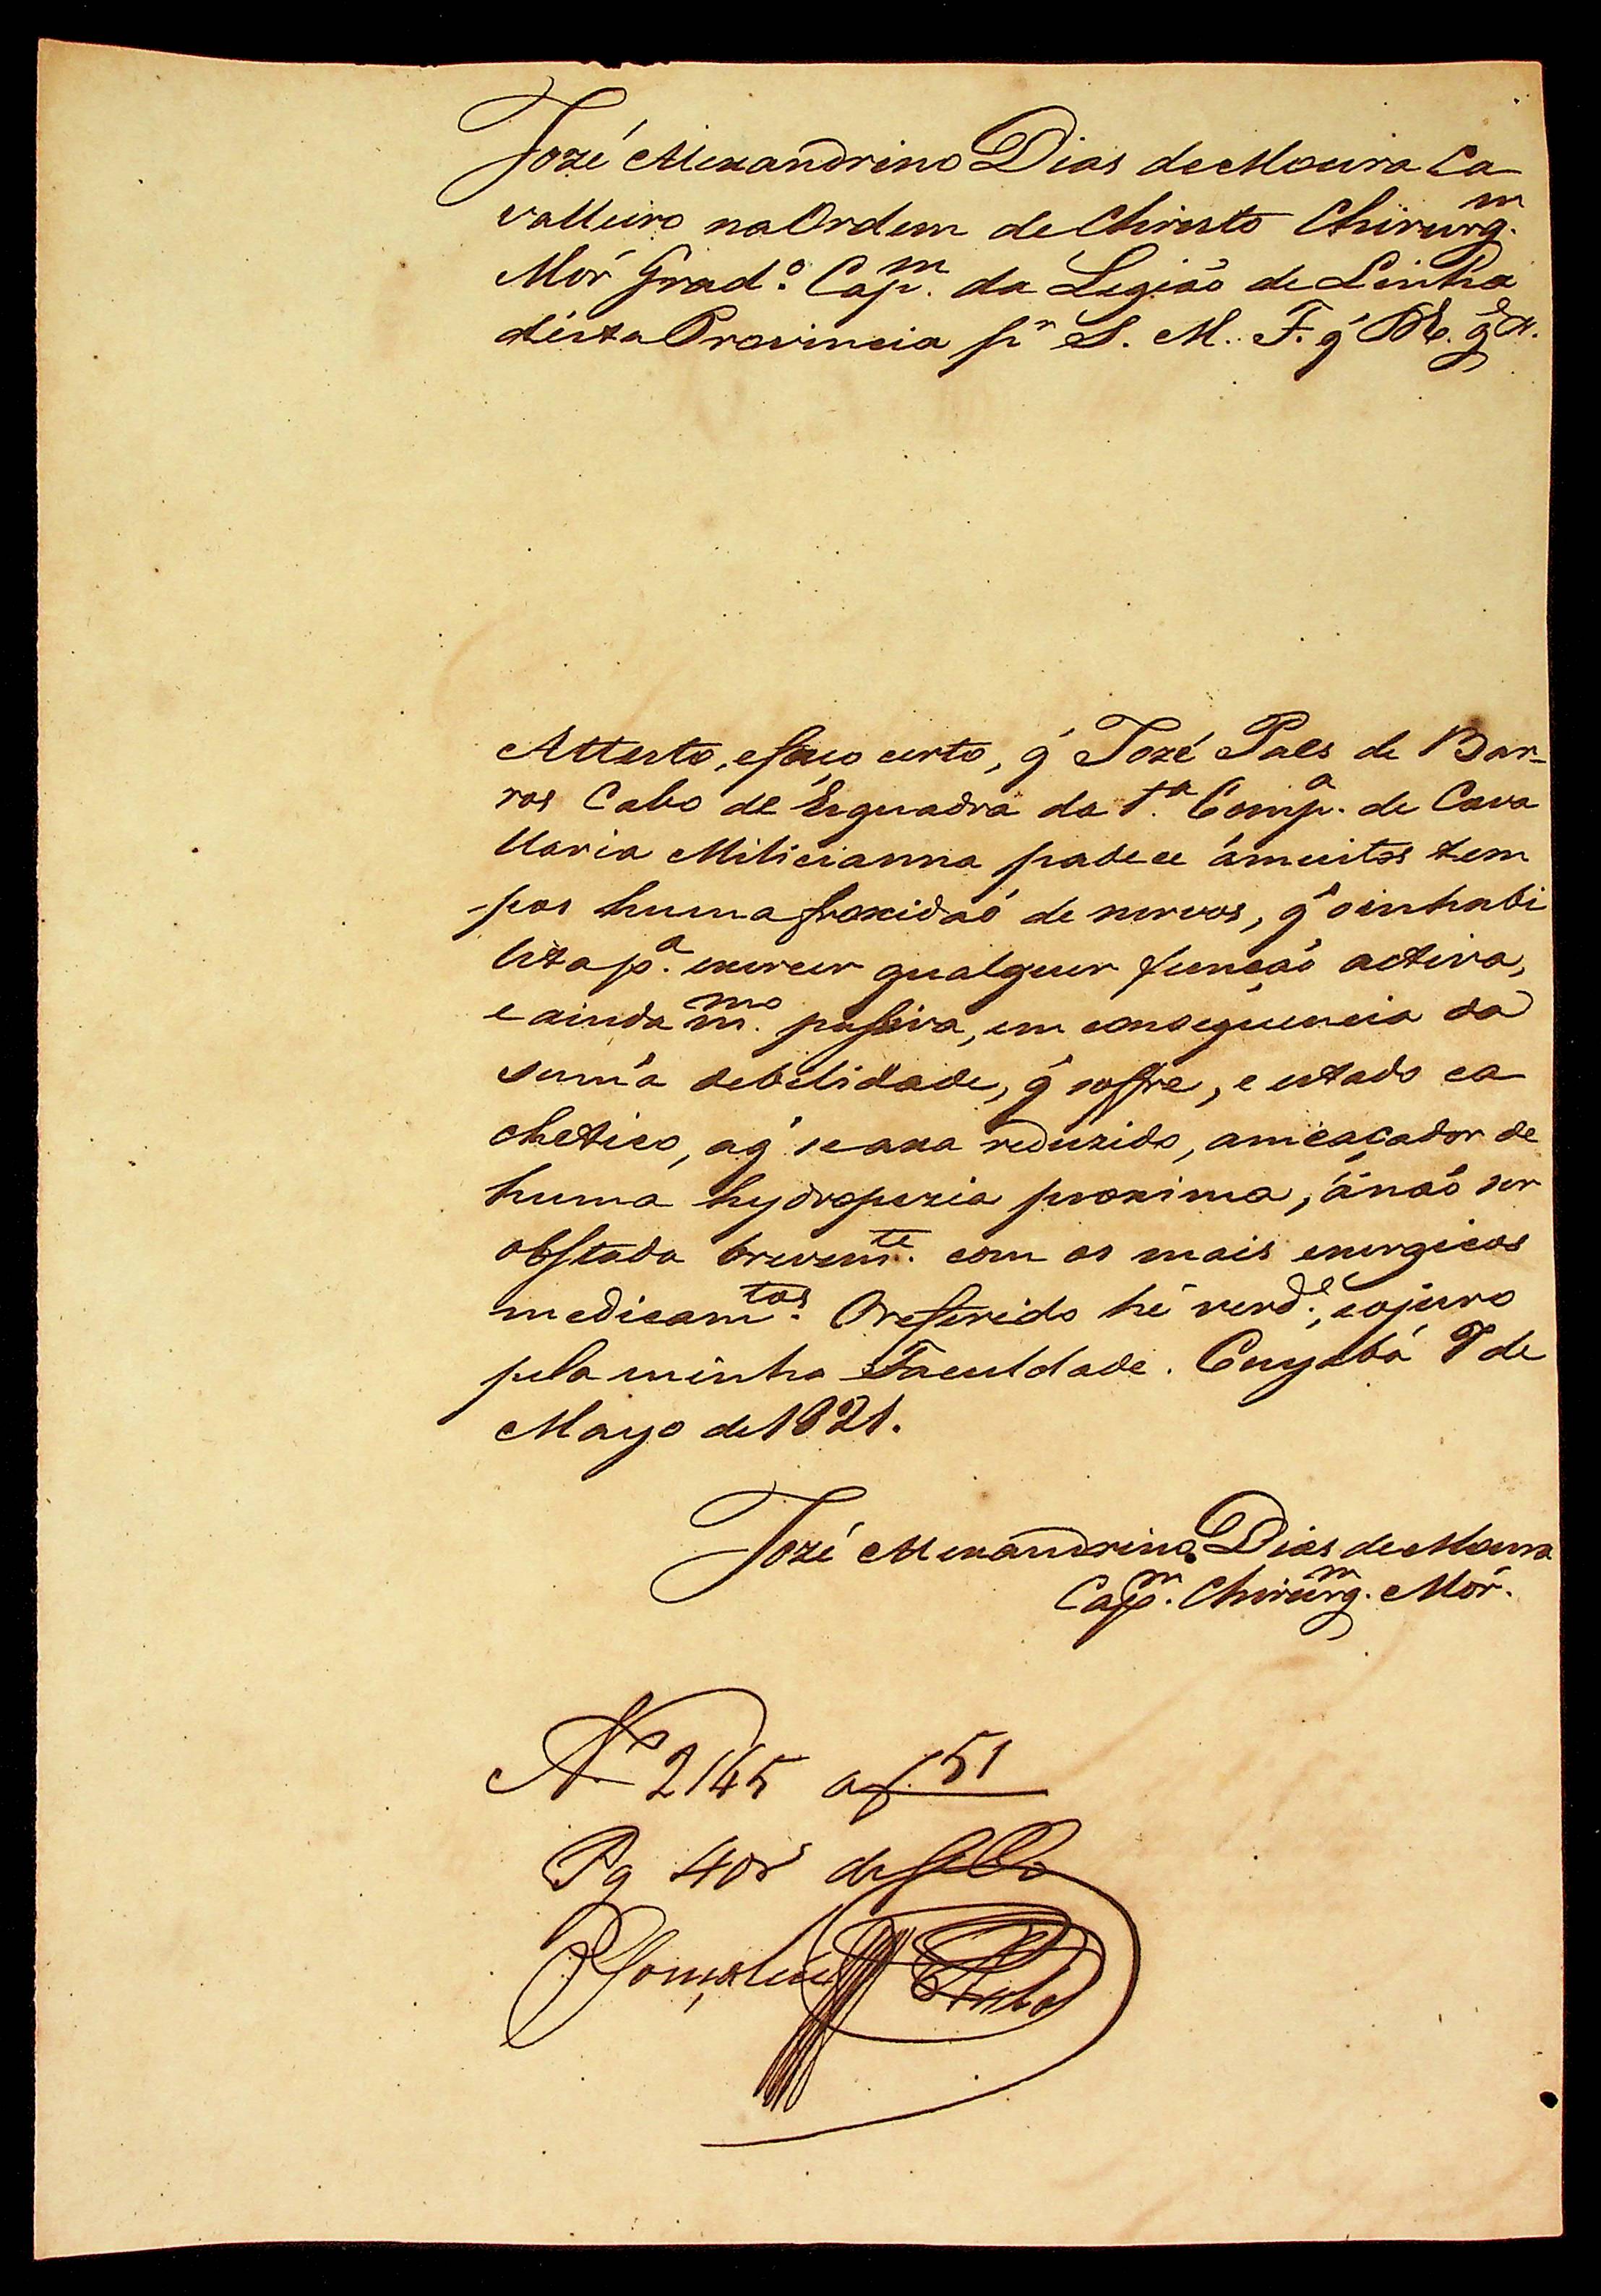 Jozé Alexandrino Dias de Moura Ca
valleiro na Ordem de Christo Chirurg.m
Mór Grad.º Cap.m da Legiaõ de Linha
desta Provincia pr S. M. F. q̃ D.s g.de &.
Attesto, efaço certo, q̃ Jozé Paes de Bar-
ros Cabo de Esquadra da 1.ª Comp.ª de Cava
llaria Milicianna padece ámuitos tem
pos huma froxidaõ de nervos, q̃ oinhabi
lita p.ª exercer qualquer funçaõ activa,
e ainda m.mo passiva, em consequencia da
suma debelidade, q̃ soffre, e estado ca
chetico, aq̃ se axa reduzido, ameaçador de
huma hydropezia proxima, ánaõ ser
obstada brevem.te com os mais energicos
medicam.tos Oreferido hé verd.e, eojuro
pela minha Faculdade. Cuyabá 7 de
Mayo de 1821.
Jozé Alexandrino Dias de Moura
Cap.m Chirurg.m Mór.
Nº 2145 a f 51
Pg 40rs de sello
Gonçalves